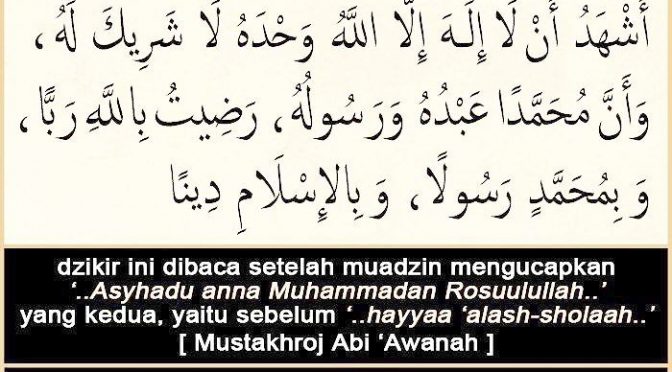 أَشْهَدُ أَنْ لَا إِلَهَ إِلَّا اللَّهُ وَحْدَهُ لَا شَرِيكَ لَهُ،
وَأَنَّ مُحَمَّدًا عَبْدُهُ وَرَسُولُهُ، رَضِيتُ بِاللَّهِ رَبًّا،
وَبِمُحَمَّدٍ رَسُولًا، وَبِالإِسْلَامِ دِينًا
dzikir ini dibaca setelah muadzin mengucapkan
‘..Asyhadu anna Muhammadan Rosuulullah..’
yang kedua, yaitu sebelum ‘..hayyaa ‘alash-sholaah..’
[ Mustakhroj Abi ‘Awanah ]